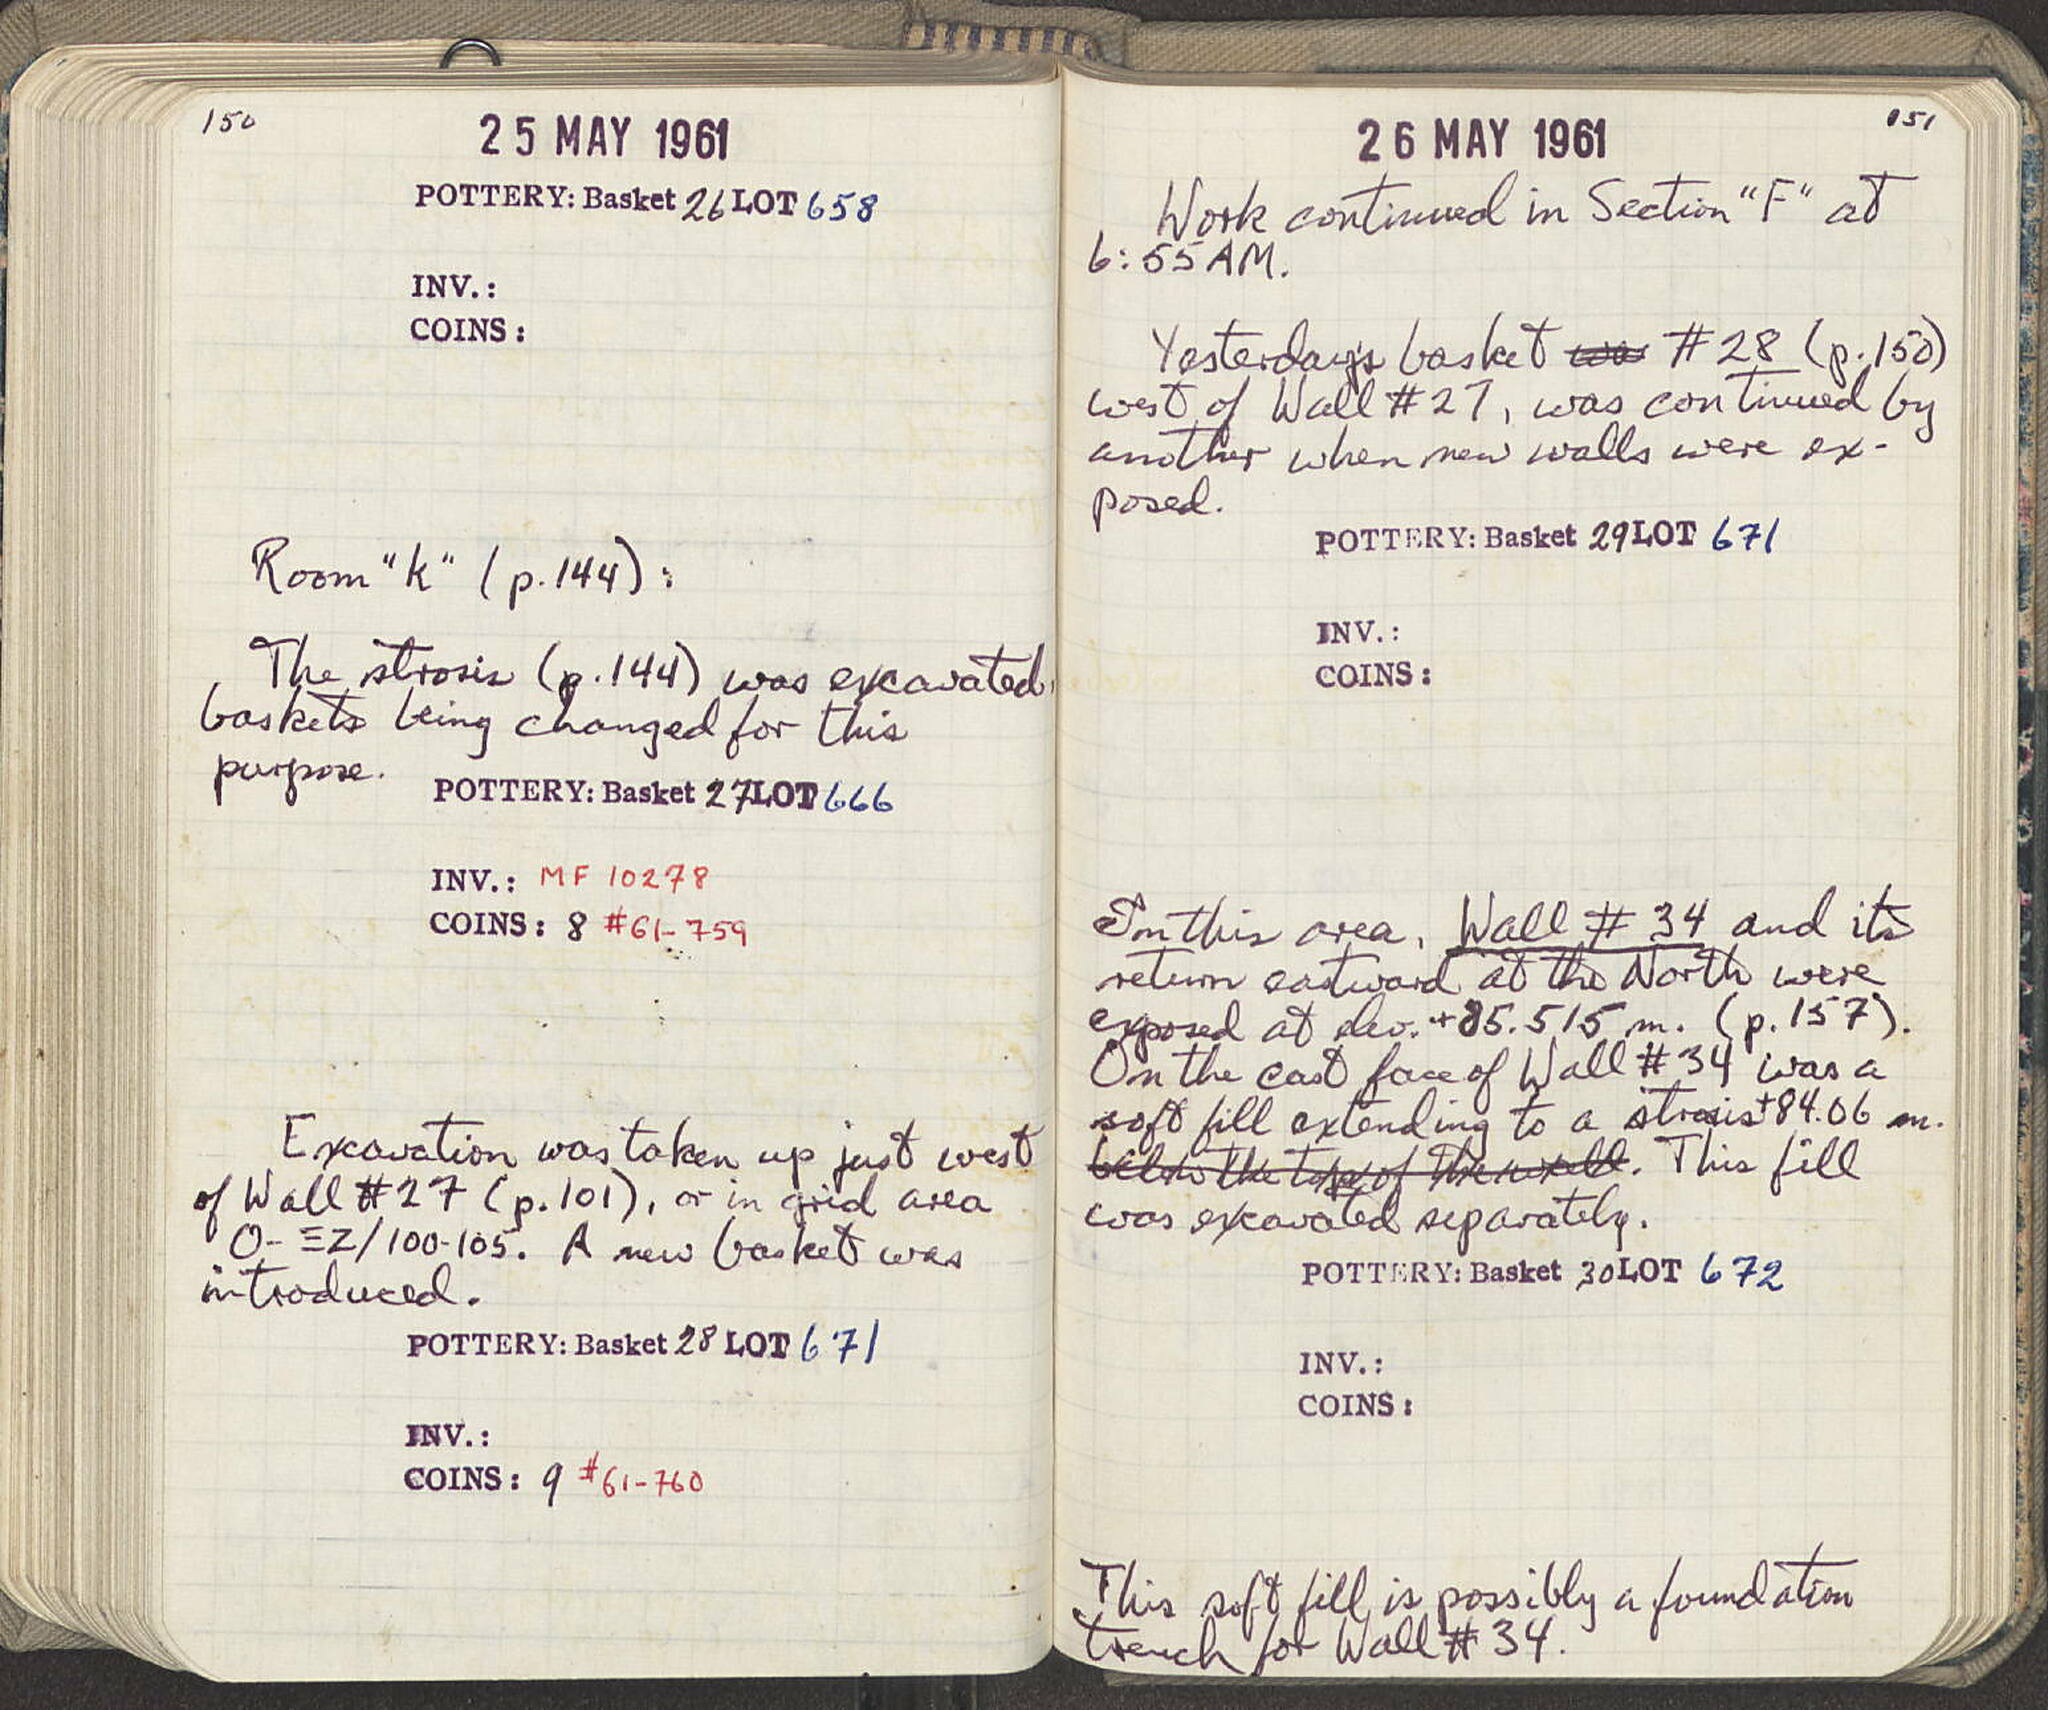 150
25 MAY 1961
POTTERY: Basket 26 LOT 658
INV.:
COINS:
Room "K" (p.144):
The strosis (p.144) was excavated,
baskets being changed for this
purpose.
POTTERY: Basket 27 LOT 666
INV.: MF 10278
COINS: 8 #61-759
Excavation was taken up just west
of Wall #27 (p.101), or in grid area
O-ΞZ/100-105. A new basket was
introduced.
POTTERY: Basket 28 LOT 671
INV.:
COINS: 9 #61-760
151
26 MAY 1961
Work continued in Section "F" at
6:55 AM.
Yesterday's basket was #28 (p.150)
west of Wall #27, was continued by
another when new walls were ex-
posed.
POTTERY: Basket 29 LOT 671
INV.:
COINS:
In this area, Wall #34 and its
return eastward at the North were
exposed at elev. +85.515 m. (p.157).
On the east face of Wall #34 was a
soft fill extending to a strosis +84.06 m.
below the top of the wall. This fill
was excavated separately.
POTTERY: Basket 30 LOT 672
INV.:
COINS:
This soft fill is possibly a foundation
trench for Wall #34.